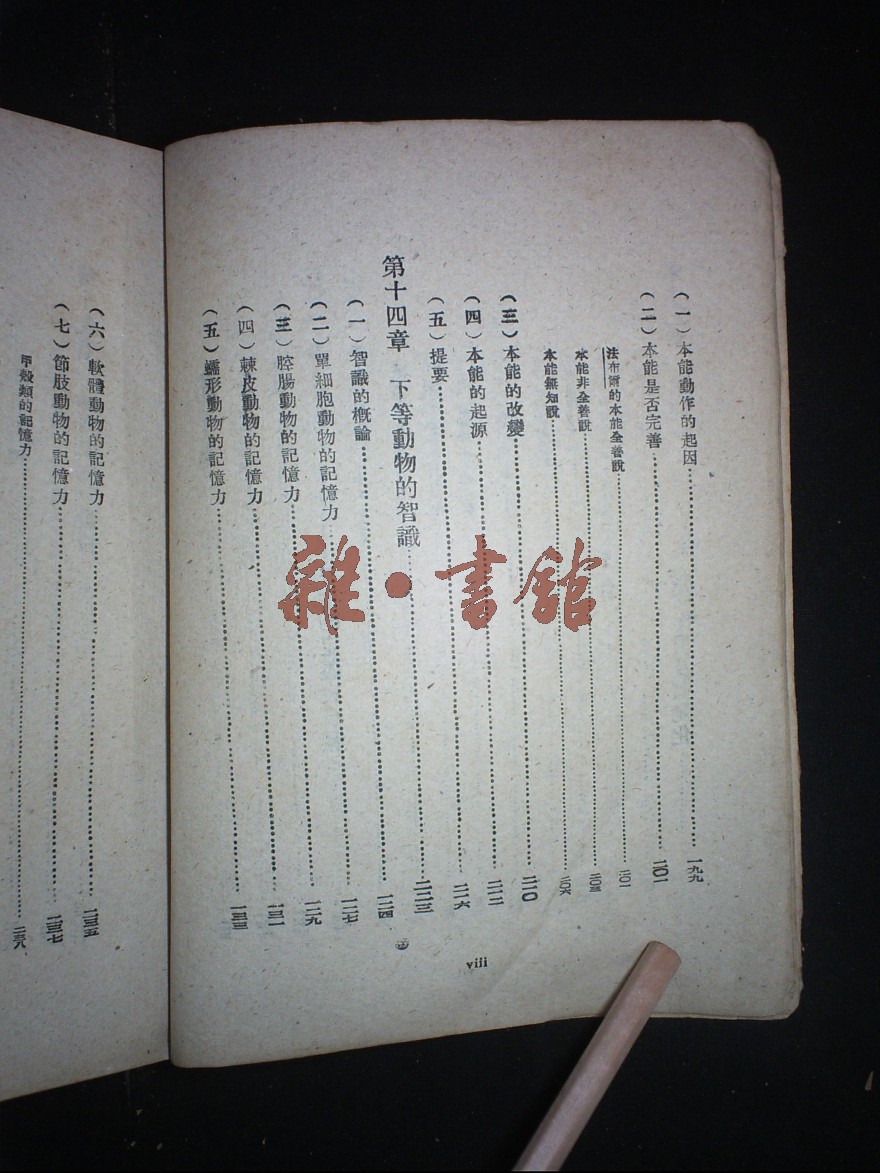 (一)本能動作的起因……一九九
(二)本能是否完善……二〇一
法布爾的本能全善說……二〇一
本能非全善說……二〇三
本能無知說……二〇六
(三)本能的改變……二一〇
(四)本能的起源……二一二
(五)提要……二一六
第十四章 下等動物的智識……二二三
(一)智識的概論……二二四
(二)單細胞動物的記憶力……二二七
(三)腔腸動物的記憶力……二二九
(四)棘皮動物的記憶力……二三一
(五)蠕形動物的記憶力……二三三
viii
(六)軟體動物的記憶力……二三五
(七)節肢動物的記憶力……二三七
甲殼類的記憶力……二三八
雜·書館